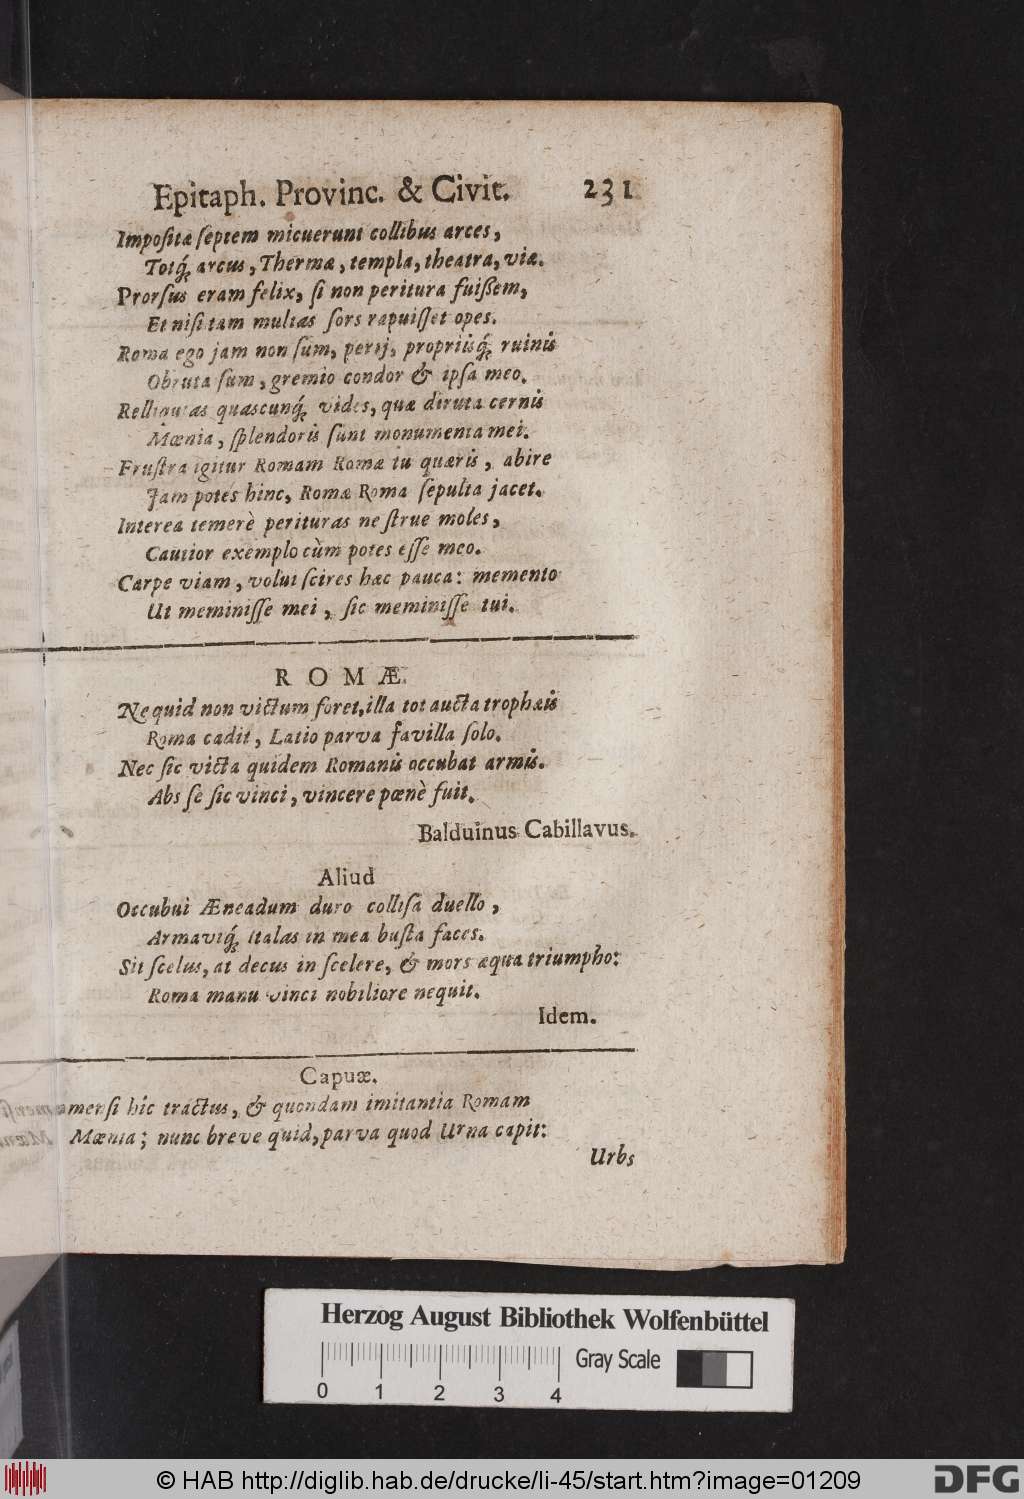 Epitaph. Provinc. & Civit. 231
Impositæ septem micuerunt collibus arces,
Totq́; arcus, Thermæ, templa, theatra, viæ.
Prorsus eram felix, si non peritura fuißem,
Et nisi tam multas sors rapuisset opes.
Roma ego jam non sum, perij, propriisq́; ruinis
Obruta sum, gremio condor & ipsa meo.
Relliquias quascunq́; vides, quæ diruta cernis
Mœnia, splendoris sunt monumenta mei.
Frustra igitur Romam Romæ tu quæris, abire
Jam potes hinc, Romæ Roma sepulta jacet.
Interea temerè perituras ne strue moles,
Cautior exemplo cùm potes esse meo.
Carpe viam, volui scires hæc pauca: memento
Ut meminisse mei, sic meminisse tui.
ROMÆ.
Ne quid non victum foret, illa tot aucta trophæis
Roma cadit, Latio parva favilla solo.
Nec sic victa quidem Romanis occubat armis.
Abs se sic vinci, vincere pœnè fuit.
Balduinus Cabillavus.
Aliud
Occubui Æneadum duro collisa duello,
Armaviq́; Italas in mea busta faces.
Sit scelus, at decus in scelere, & mors æqua triumpho:
Roma manu vinci nobiliore nequit.
Idem.
Capuæ.
mensi hîc tractus, & quondam imitantia Romam
Mœnia; nunc breve quid, parva quod Urna capit:
Urbs
Herzog August Bibliothek Wolfenbüttel
0 1 2 3 4 Gray Scale
© HAB http://diglib.hab.de/drucke/li-45/start.htm?image=01209 DFG